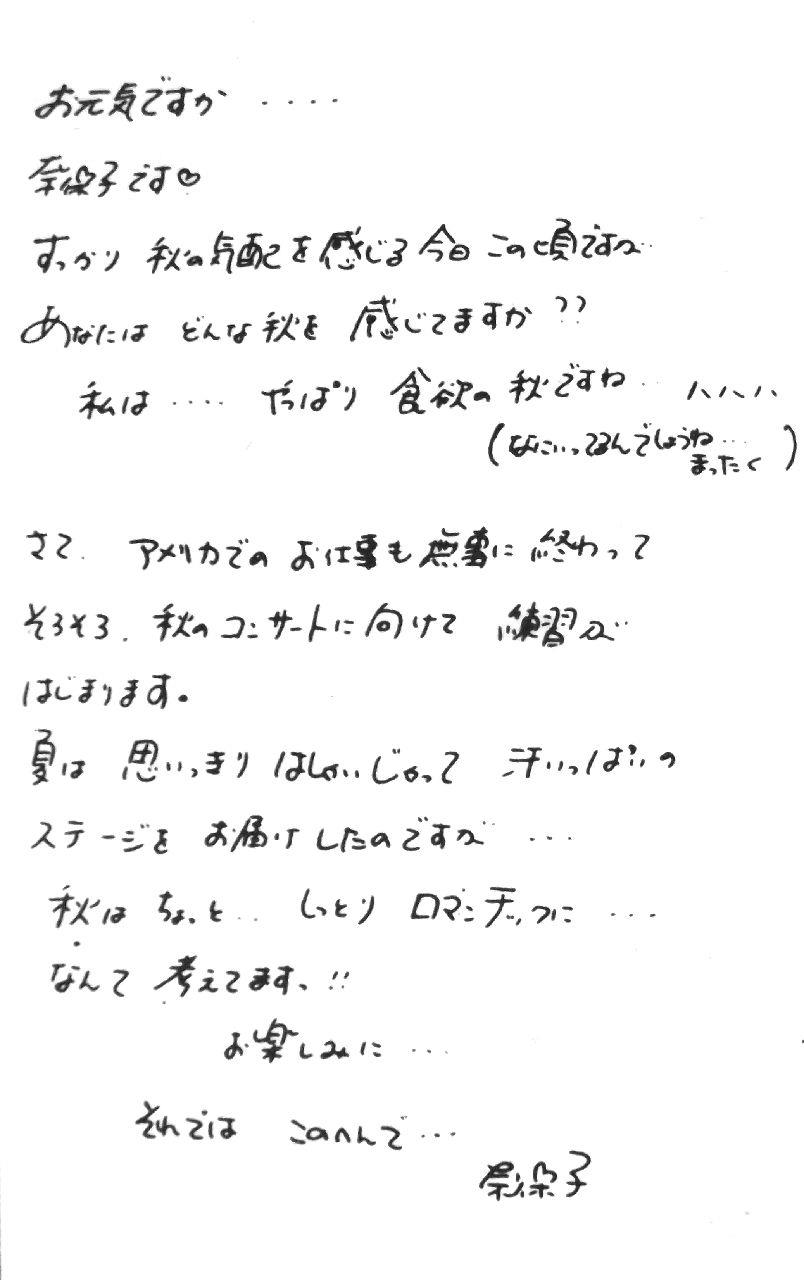 お元気ですか ・・・・
奈保子です♡
すっかり 秋の気配を感じる今日この頃ですが・・
あなたは どんな秋を 感じてますか??
私は ・・・・ やっぱり 食欲の秋ですね・・ ハハハハ
(なにいってるんでしょうね・・・
まったく)
さて、アメリカでの お仕事も無事に 終わって
そろそろ、秋のコンサートに向けて 練習が
はじまります。
夏は 思いっきり はしゃいじゃって 汗いっぱいの
ステージを お届けしたのですが ・・・
秋は ちょっと・・ しっとり ロマンチックに ・・・
なんて 考えてます、!!
お楽しみに ・・・
それでは このへんで ・・・
奈保子